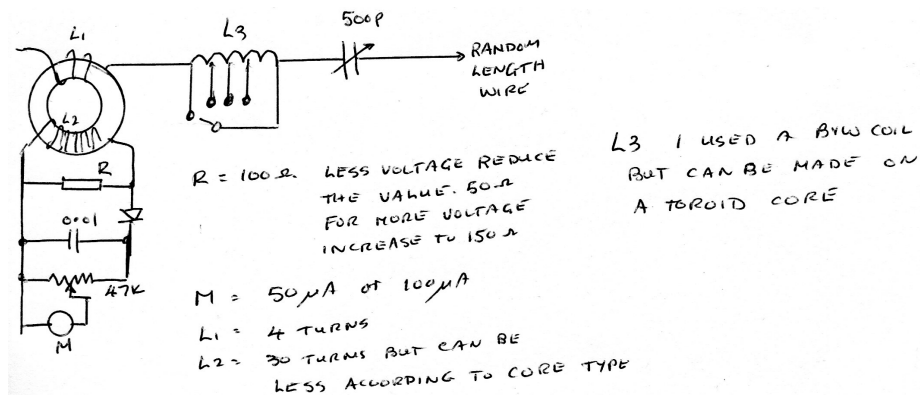 500p
L1
L3
RANDOM
LENGTH
WIRE
L2
R
0.01
47K
M
R = 100Ω LESS VOLTAGE REDUCE
THE VALUE. 50Ω
FOR MORE VOLTAGE
INCREASE TO 150Ω
M = 50μA or 100μA
L1 = 4 TURNS
L2 = 30 TURNS BUT CAN BE
LESS ACCORDING TO CORE TYPE
L3 I USED A B&W COIL
BUT CAN BE MADE ON
A TOROID CORE